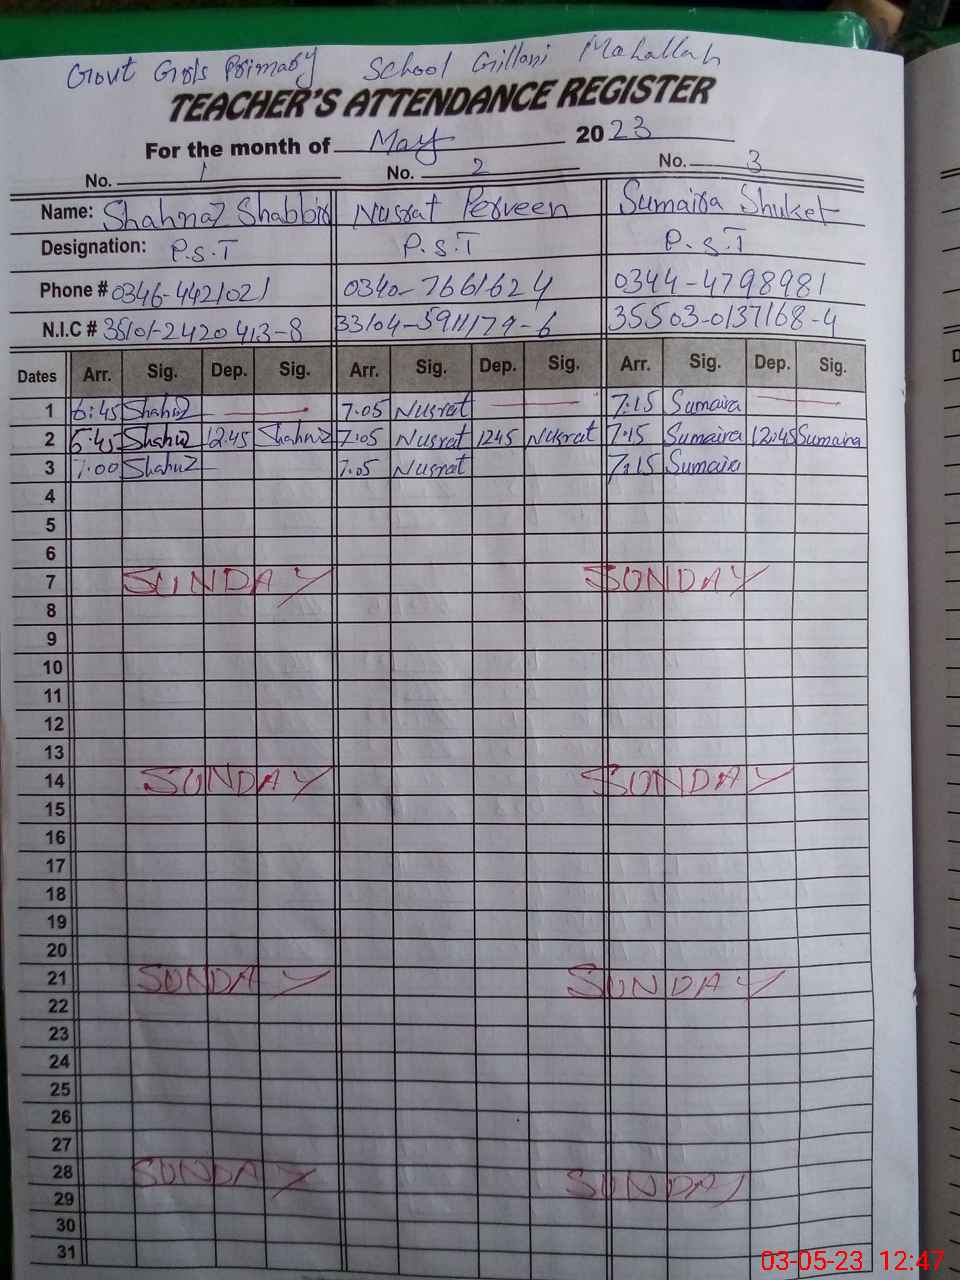 Govt Girls Primary School Gillani Mahallah
TEACHER'S ATTENDANCE REGISTER
For the month of May 2023
No. 1 No. 2 No. 3
Name: Shahnaz Shabbir Nusrat Perveen Sumaira Shuket
Designation: P.S.T P.S.T P.S.T
Phone # 0346-4421021 0340-7661624 0344-4798981
N.I.C # 35101-2420413-8 33104-5911179-6 35503-0137168-4
Dates Arr. Sig. Dep. Sig. Arr. Sig. Dep. Sig. Arr. Sig. Dep. Sig.
1 6:45 Shahnz 7.05 Nusrat 7:15 Sumaira
2 6:45 Shahnz 12:45 Shahnz 7:05 Nusrat 1245 Nusrat 7:15 Sumaira 12:45 Sumaira
3 7:00 Shahnz 7.05 Nusrat 7:15 Sumaira
4
5
6
7 SUNDAY SUNDAY
8
9
10
11
12
13
14 SUNDAY SUNDAY
15
16
17
18
19
20
21 SUNDAY SUNDAY
22
23
24
25
26
27
28 SUNDAY SUNDAY
29
30
31
03-05-23 12:47